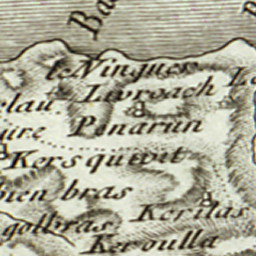 Ba
le Ningues
Livroach Le
elau
ure Penarun
Kersquivit
bien bras
Kerilas
golbras
Keroulla